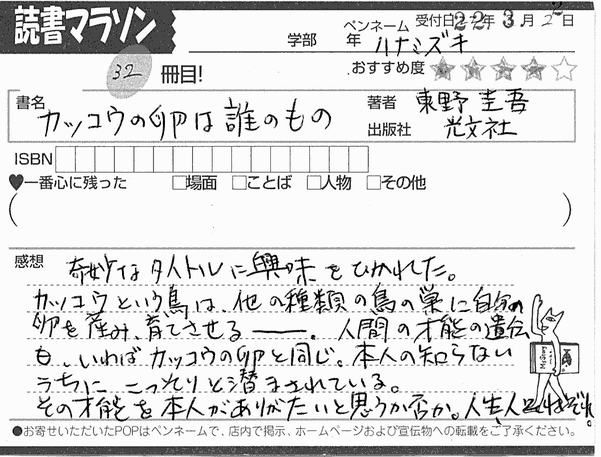 読書マラソン
学部 年 ペンネーム ハナミズキ 受付日 22年 3月 2日
32 冊目! おすすめ度 ★★★★☆
書名 カッコウの卵は誰のもの 著者 東野圭吾
出版社 光文社
ISBN
♥一番心に残った □場面 □ことば □人物 □その他
( )
感想 奇妙なタイトルに興味をひかれた。
カッコウという鳥は、他の種類の鳥の巣に自分の
卵を産み、育てさせる――。人間の才能の遺伝
も、いわばカッコウの卵と同じ。本人の知らない
うちに こっそりと潜まされている。
その才能を本人がありがたいと思うか否か。人生、人それぞれ。
●お寄せいただいたPOPはペンネームで、店内で掲示、ホームページおよび宣伝物への転載をご了承ください。